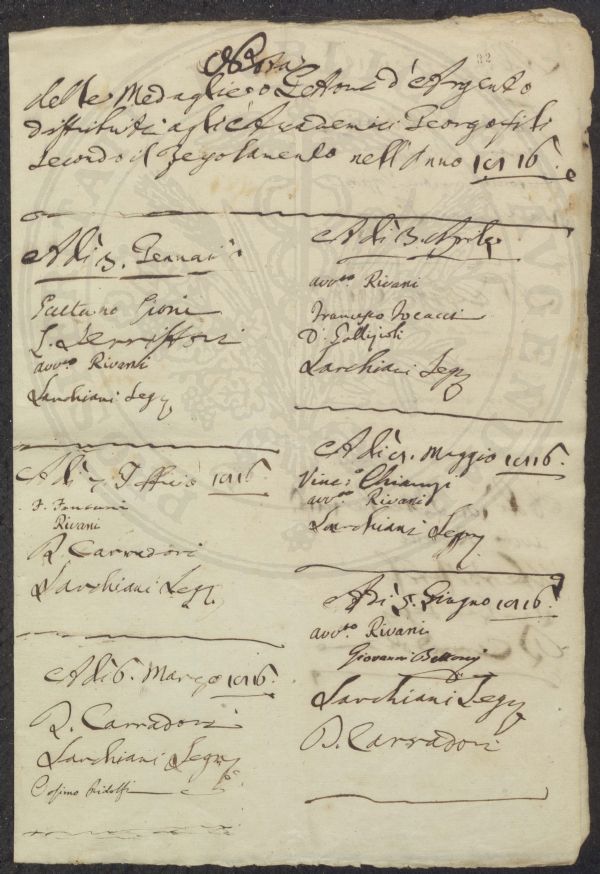 32
Nota
delle Medaglie o Gettoni d'Argento
distribuiti agli Accademici Georgofili
secondo il Regolamento nell'Anno 1816.
Adì 3. Gennaio
Gaetano Gioni
avv.to Rivani
Sarchiani Seg.
Adì 7. 1816
Rivani
R. Carradori
Sarchiani Seg.
Adì 6. Marzo 1816
R. Carradori
Sarchiani Seg.
Cosimo Ridolfi
Adì 3. Aprile
avv.to Rivani
Francesco
D. Gallizioli
Sarchiani Seg.
Adì Maggio 1816.
Vinc.o Chiarugi
avv.to Rivani
Sarchiani Seg.
Adì 5. Giugno 1816.
avv.to Rivani
Giovanni Bettoni
Sarchiani Seg.
R. Carradori